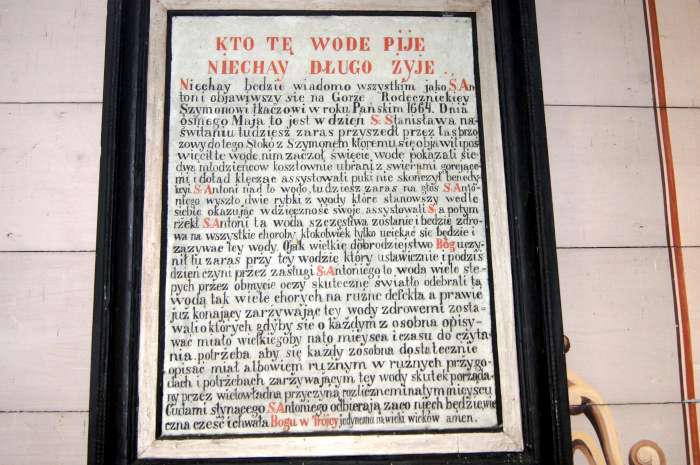 KTO TĘ WODE PIJE
NIECHAY DŁUGO ŻYJE
Niechay będzie wiadomo wszystkim jako S. An
toni objawiwszy się na Gorze Rodecznickiey
Szymonowi tkaczowi w roku Pańskim 1664. Dnia
osmego Maja to jest w dzień S. Stanisława na
świtaniu tudziesz zaras przyszedł przez las brzo
zowy do tego Stoko z Szymonem ktoremu się obiawił i pos
więcił te wode, nim zaczoł święcic wode pokazali sie
dwa młodzieńcow kosztownie ubrani z swiecami gorejące
mi i dotąd klęcząc assystowali puki nie skończył benedy
kcyi S. Antoni nad to wodo, tudziesz zaras na głos S. Antó
niego wyszło dwie rybki z wody ktore stanowszy wedle
siebie okazując wdzięczność swoje assystowali S. a potym
rzekł S. Antoni ta woda szczęstwa zostanie i będzie zdro
wa na wszystkie choroby ktokolwiek tylko uciekać sie będzie i
zażywac tey wody. O jak wielkie dobrodziejstwo Bog uczy
nił tu zaras przy tey wodzie ktory ustawicznie i podziś
dzień czyni przez zasługi S. Antoniego to woda wiele sle
pych przez obmycie oczy skuteczne światło odebrali tą
wodą tak wiele chorych na rużne defekta a prawie
już konający zarzywając tey wody zdrowemi zosta
wali o ktorych gdyby sie o każdym z osobna opisy
wać miało wielkiegoby nato miejsca i czasu do czyta
nia potrzeba aby się każdy zosobna dostatecznie
opisac miał albowiem rużnym w rużnych przygo
dach i potrzebach zarzywającym tey wody skutek porząda
ny przez wielowładną przyczynę rozliczne mi na tym mieyscu
Cudami słynącego S. Antoniego odbierają za co niech będzie wie
czna cześć i chwała Bogu w Trojcy jedynemu na wieki wieków amen.